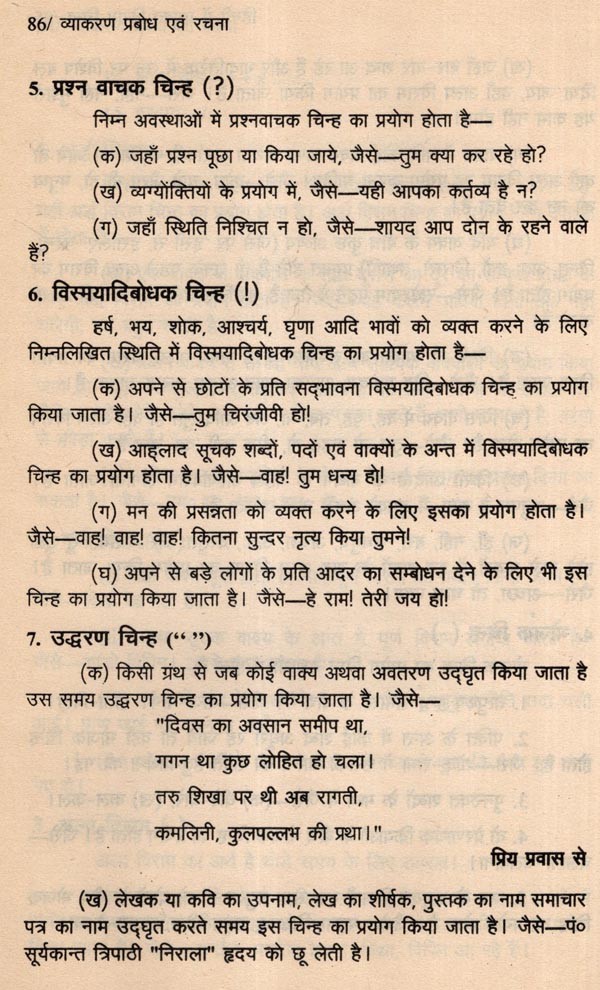 86/ व्याकरण प्रबोध एवं रचना
5. प्रश्न वाचक चिन्ह (?)
निम्न अवस्थाओं में प्रश्नवाचक चिन्ह का प्रयोग होता है—
(क) जहाँ प्रश्न पूछा या किया जाये, जैसे—तुम क्या कर रहे हो?
(ख) व्यग्योंक्तियों के प्रयोग में, जैसे—यही आपका कर्तव्य है न?
(ग) जहाँ स्थिति निश्चित न हो, जैसे—शायद आप दोन के रहने वाले
हैं?
6. विस्मयादिबोधक चिन्ह (!)
हर्ष, भय, शोक, आश्चर्य, घृणा आदि भावों को व्यक्त करने के लिए
निम्नलिखित स्थिति में विस्मयादिबोधक चिन्ह का प्रयोग होता है—
(क) अपने से छोटों के प्रति सद्भावना विस्मयादिबोधक चिन्ह का प्रयोग
किया जाता है। जैसे—तुम चिरंजीवी हो!
(ख) आह्लाद सूचक शब्दों, पदों एवं वाक्यों के अन्त में विस्मयादिबोधक
चिन्ह का प्रयोग होता है। जैसे—वाह! तुम धन्य हो!
(ग) मन की प्रसन्नता को व्यक्त करने के लिए इसका प्रयोग होता है।
जैसे—वाह! वाह! वाह! कितना सुन्दर नृत्य किया तुमने!
(घ) अपने से बड़े लोगों के प्रति आदर का सम्बोधन देने के लिए भी इस
चिन्ह का प्रयोग किया जाता है। जैसे—हे राम! तेरी जय हो!
7. उद्धरण चिन्ह (“ ”)
(क) किसी ग्रंथ से जब कोई वाक्य अथवा अवतरण उद्घृत किया जाता है
उस समय उद्धरण चिन्ह का प्रयोग किया जाता है। जैसे—
"दिवस का अवसान समीप था,
गगन था कुछ लोहित हो चला।
तरु शिखा पर थी अब रागती,
कमलिनी, कुलपल्लभ की प्रथा।"
प्रिय प्रवास से
(ख) लेखक या कवि का उपनाम, लेख का शीर्षक, पुस्तक का नाम समाचार
पत्र का नाम उद्घृत करते समय इस चिन्ह का प्रयोग किया जाता है। जैसे—पं०
सूर्यकान्त त्रिपाठी "निराला" हृदय को छू लेती है।